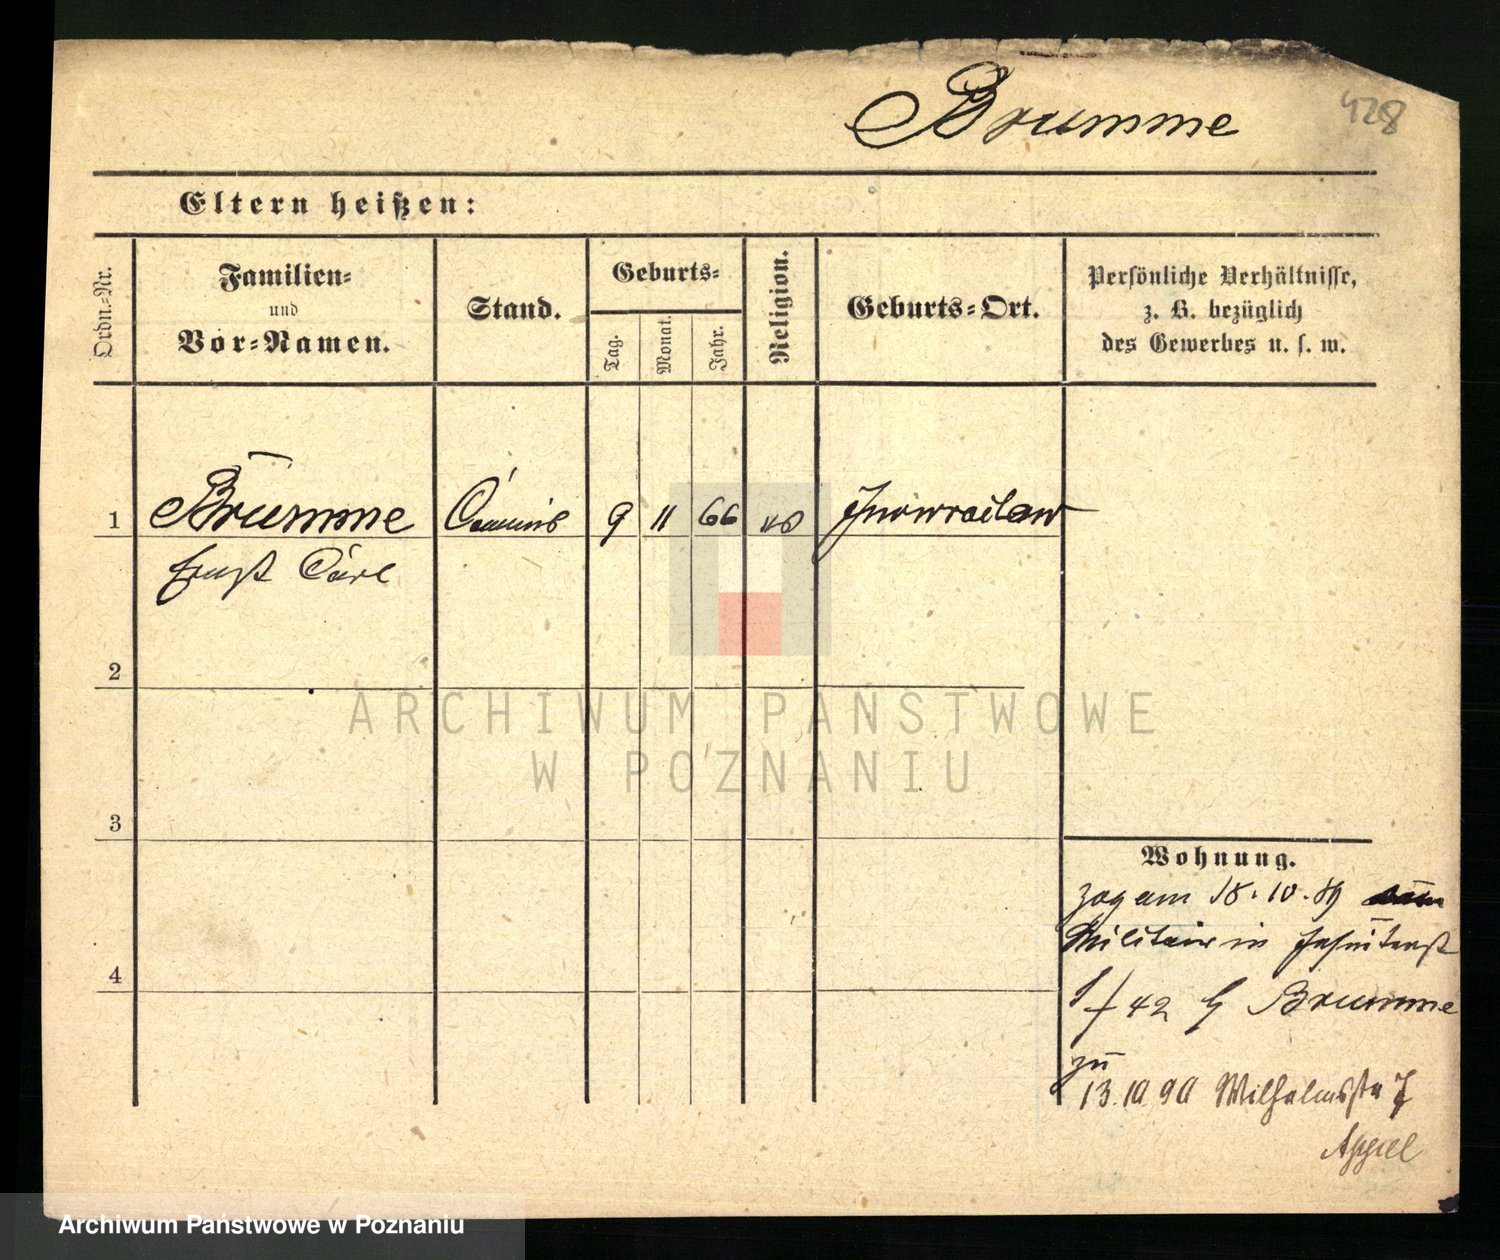 Brumme
428
Eltern heißen:
Ordn.-Nr.
Familien-
und
Vor-Namen.
Stand.
Geburts-
Tag.
Monat.
Jahr.
Religion.
Geburts-Ort.
Persönliche Verhältnisse,
z. B. bezüglich
des Gewerbes u. s. w.
1 Brumme Commis 9 11 66 Inowraclaw
Ernst Carl
2
ARCHIWUM PAŃSTWOWE
W POZNANIU
3
Wohnung.
zog am 18.10.89
Militair in
42 Brumme
4
zu
13.10.90 Wilhelmsstr 7
Appel
Archiwum Państwowe w Poznaniu